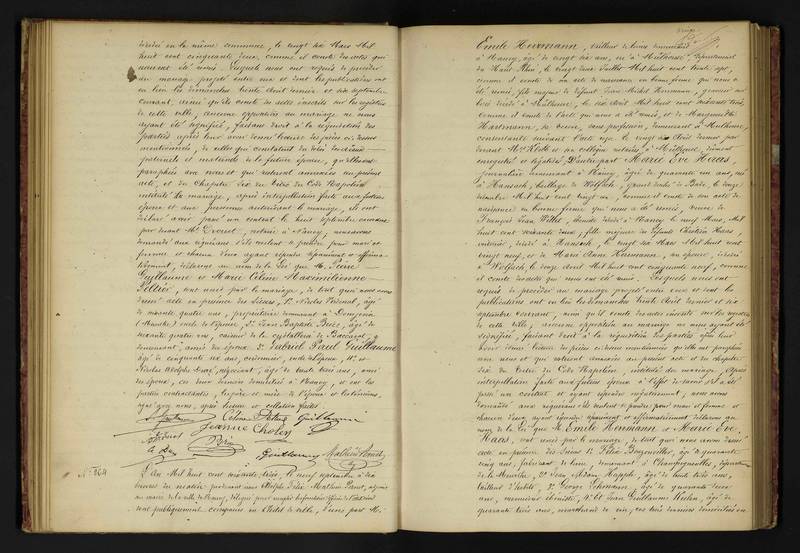 décédé en la même commune, le vingt six Mars Mil
huit cent cinquante deux, comme il conste des actes qui
nous ont été remis. Lesquels nous ont requis de procéder
au mariage projeté entre eux et dont les publications ont
eu lieu les dimanches trente Août dernier et six septembre
courant, ainsi qu'il conste des actes inscrits sur les registres
de cette ville, aucune opposition au mariage ne nous
ayant été signifiée, faisant droit à la réquisition des
parties après leur avoir donné lecture des pièces ci-dessus
mentionnées, de celles qui constatent les décès des aïeuls
paternels et maternels de la future épouse, qu'elles ont
paraphées avec nous et qui resteront annexées au présent
acte, et du Chapitre six du titre du Code Napoléon
intitulé du mariage, après interpellation faite aux futurs
époux et aux personnes autorisant le mariage, ils ont
déclaré avoir passé un contrat le huit septembre courant
par devant Me Drouet, notaire à Nancy; nous avons
demandé aux requérans s'ils veulent se prendre pour mari et
femme et chacun d'eux ayant répondu séparément et affirma-
tivement, déclarons au nom de la Loi que M. Pierre
Guillaume et Marie Céline Maximilienne
Peltier, sont unis par le mariage, de tout quoi nous avons
dressé acte en présence des Sieurs, 1° Nicolas Verdenal, âgé
de soixante quatre ans, propriétaire demeurant à Domjevin
(Meurthe) oncle de l'épouse, 2° Jean Baptiste
soixante quatre ans, caissier de la cristallerie de Baccarat, y
demeurant, ami des époux, 3° Gabriel Paul Guillaume
âgé de cinquante six ans, cordonnier, oncle de l'époux, 4° et
Nicolas Adolphe négociant, âgé de trente trois ans, ami
des époux, ces deux derniers domiciliés à Nancy, et ont les
parties contractantes, les père et mère de l'épouse et les témoins
signé avec nous, après lecture et collation faites.
Céline Peltier Guillaume
Jeanne
Guillaume Mathieu
N° 364
L'An Mil huit cent soixante trois, le neuf septembre à dix
heures du matin par devant nous Adolphe Félix Mathieu adjoint
au maire de la ville de Nancy, délégué pour remplir les fonctions d'officier de l'état civil
sont publiquement comparus en l'hôtel de ville, d'une part M.
Emile Herrmann, tailleur de limes demeurant
à Nancy, âgé de vingt six ans, né à Mulhouse, département
du Haut Rhin, le vingt deux Juillet Mil huit cent trente sept,
comme il conste de son acte de naissance en bonne forme qui nous a
été remis, fils majeur de défunt Jean Michel Herrmann, graveur sur
bois décédé à Mulhouse, le dix Août Mil huit cent soixante trois,
comme il conste de l'acte qui nous a été remis, et de Marguerite
Hartmann, sa veuve, sans profession, demeurant à Mulhouse,
consentante suivant acte reçu le vingt Août dernier par
devant Me Klott et son collègue notaires à Mulhouse, dûment
enregistré et légalisé. D'autre part Marie Eve Haas,
journalière demeurant à Nancy, âgée de quarante un ans, née
à Hausach, bailliage de Wolfach, grand duché de Bade, le douze
décembre Mil huit cent vingt un, comme il conste de son acte de
naissance en bonne forme qui nous a été remis, veuve de
François Jean décédé à Nancy le neuf Mars, Mil
huit cent soixante deux, fille majeure des défunts Chrétien Haas,
décédé à Hausach, le vingt six Mars Mil huit cent
vingt neuf, et de Marie Anne Herrmann, son épouse, décédée
à Wolfach, le douze Août Mil huit cent cinquante neuf, comme
il conste des actes qui nous ont été remis. Lesquels nous ont
requis de procéder au mariage projeté entre eux et dont les
publications ont eu lieu les dimanches trente Août dernier et six
septembre courant, ainsi qu'il conste des actes inscrits sur les registres
de cette ville, aucune opposition au mariage ne nous ayant été
signifiée, faisant droit à la réquisition des parties après leur
avoir donné lecture des pièces ci-dessus mentionnées qu'elles ont paraphées
avec nous et qui resteront annexées au présent acte et du chapitre
six du titre du Code Napoléon, intitulé du mariage, après
interpellation faite aux futurs époux à l'effet de savoir s'il a été
passé un contrat et ayant répondu négativement, nous avons
demandé aux requérans s'ils veulent se prendre pour mari et femme et
chacun d'eux ayant répondu séparément et affirmativement déclarons au
nom de la Loi que M. Emile Herrmann et Marie Eve
Haas, sont unis par le mariage, de tout quoi nous avons dressé
acte en présence des Sieurs 1° Félix âgé de quarante
cinq ans, fabricant de limes, demeurant à Champigneulles, département
de la Meurthe, 2° Jean âgé de trente trois ans,
tailleur d'habits, 3° George Lehmann, âgé de quarante deux
ans, menuisier ébéniste, 4° et Jean Guillaume âgé de
quarante trois ans, marchand de vin, ces trois derniers domiciliés en